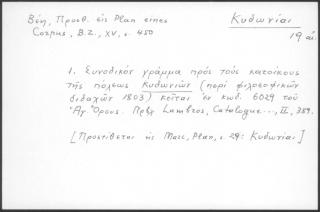 Βέη, Προσθ. εἰς Plan eines
Corpus, B.Z., XV, σ. 450
Κυδωνίαι
19 αἰ.
1. Συνοδικὸν γράμμα πρὸς τοὺς κατοίκους
τῆς πόλεως Κυδωνιῶν (περὶ φιλοσοφικῶν
διδαχῶν 1803) κεῖται ἐν κώδ. 6029 τοῦ
Ἁγ. Ὄρους. Πρβλ Lambros, Catalogue..., II, 389.
[Προστίθεται εἰς Marc, Plan, σ. 29: Κυδωνίαι]